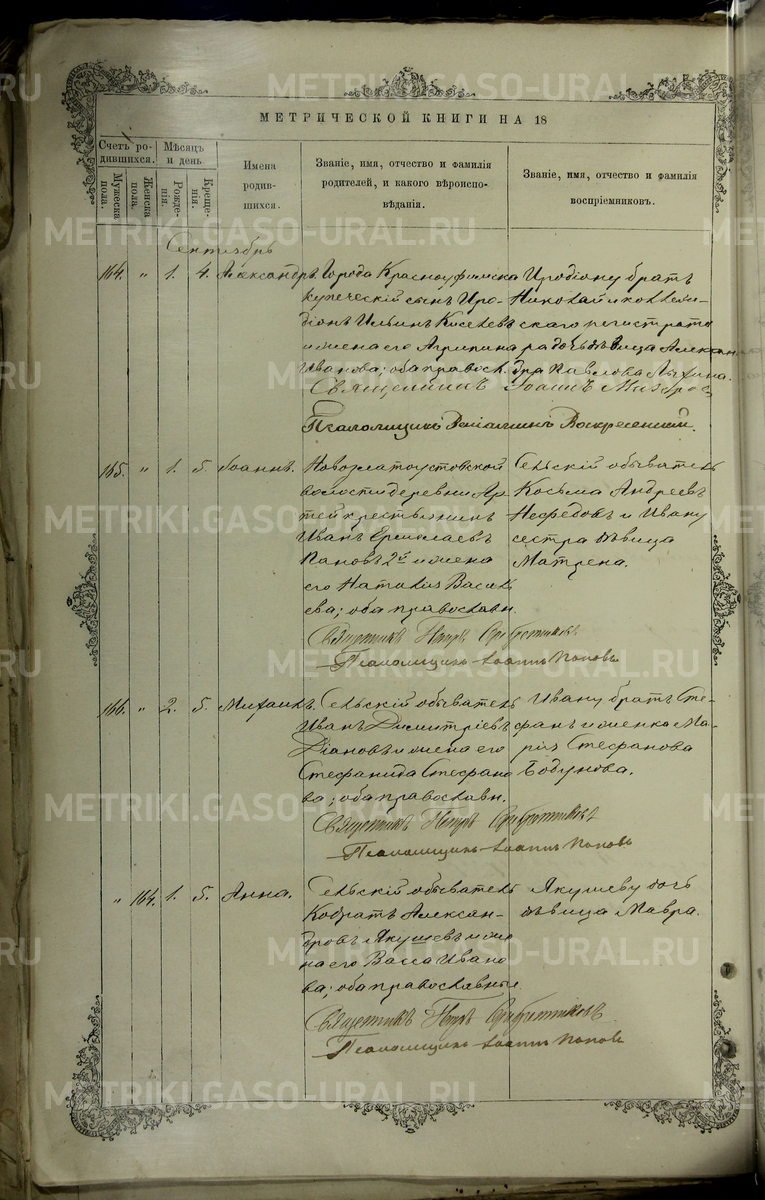 МЕТРИЧЕСКОЙ КНИГИ НА 18
Счетъ ро-
дившихся.
Мужеска
пола.
Женска
пола.
Мѣсяцъ
и день
Рожде-
нія.
Креще-
нія.
Имена
родив-
шихся.
Званіе, имя, отчество и фамилія
родителей, и какого вѣроиспо-
вѣданія.
Званіе, имя, отчество и фамилія
воспріемниковъ.
Сентябрь
164. " 1. 4. Александръ. Города Красноуфимска
купеческій сынъ Иро-
діонъ Ильинъ Киселевъ
и жена его Агрипина
Иванова; оба правосл.
Иродіону братъ
Николай и коллежи-
скаго регистрато
ра дочь дѣвица Алексан
дра Павлова
Священникъ Іоаннъ
Псаломщикъ Воскресенскій.
165. " 1. 5. Іоаннъ. Новозлатоустовской
волости деревни Ар
тей крестьянинъ
Иванъ Ермолаевъ
Пановъ 2й и жена
его Наталія Василь
ева; оба православн.
Сельскій обыватель
Косьма Андреевъ
и Ивану
сестра дѣвица
Матрена.
Священникъ Петръ
Псаломщикъ Іоаннъ Поповъ
166. " 2. 5. Михаилъ. Сельскій обыватель
Иванъ Димитріевъ
и жена его
Стефанида Стефано
ва; оба православн.
Ивану братъ Сте
фанъ и женка Ма-
рія Стефанова
Бобунова.
Священникъ Петръ
Псаломщикъ Іоаннъ Поповъ
" 164. 1. 5. Анна. Сельскій обыватель
Кодратъ Алексан-
дровъ Якушевъ и же
на его Васса Ивано
ва; оба православные.
Якушеву дочь
дѣвица Мавра.
Священникъ Петръ
Псаломщикъ Іоаннъ Поповъ
METRIKI.GASO-URAL.RU